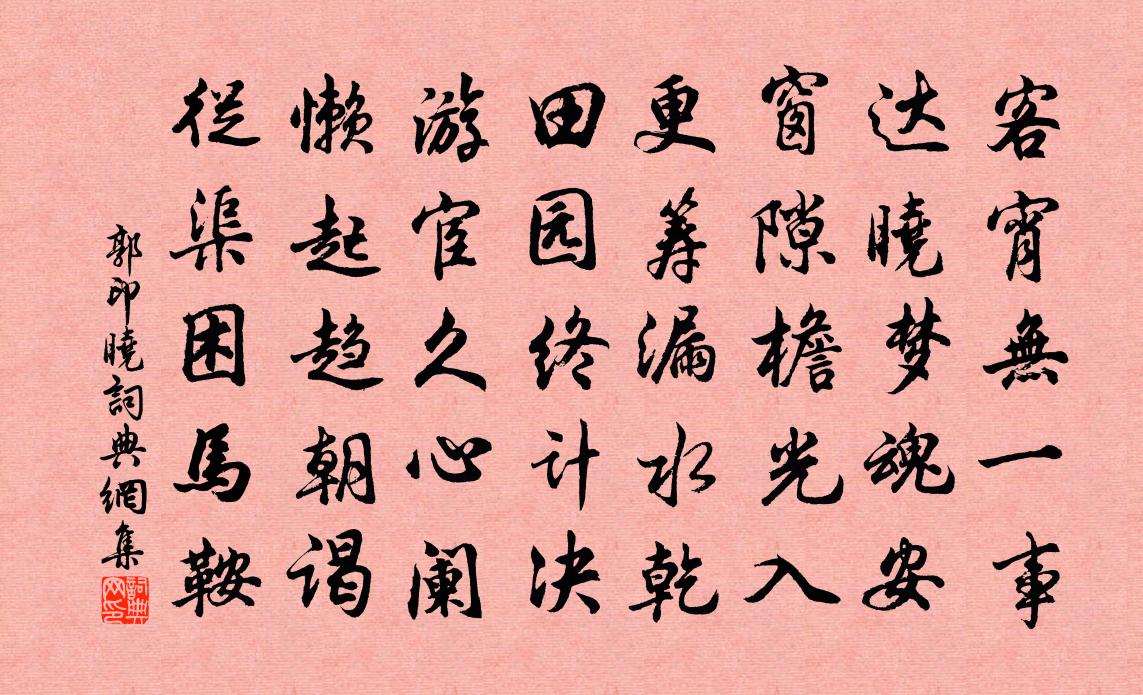 客宵無一事
达曉梦魂安
窗隙檐光入
更筹漏水乾
田园终计决
游宦久心阑
懒起趋朝谒
從渠困馬鞍
郭印曉詞典網集
詞典网印